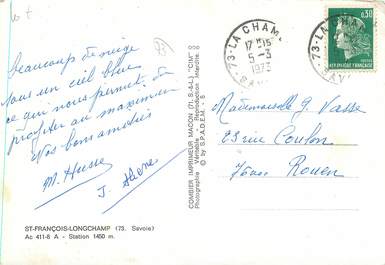 73
Beaucoup de neige
sous un ciel bleu
ce qui nous permet de
profiter au maximum
Vos bons amitiés
M. Husse
J.
ST-FRANÇOIS-LONGCHAMP (73. Savoie)
Ac 411-8 A - Station 1450 m.
COMBIER IMPRIMEUR MACON (71. S-&-L.) "CIM"
Photographie Véritable - Reproduction Interdite
© by S.P.A.D.E.M. - S
73-LA CHAM
17H15
5-3
1973
SAV
73-LA CHAM
SAV
0,30
REPUBLIQUE FRANCAISE
Mademoiselle G. Vasse
23 rue Coulon
76000 Rouen